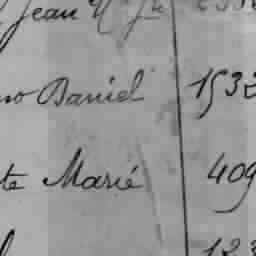 Jean
Daniel 1532
te Marié 409
123